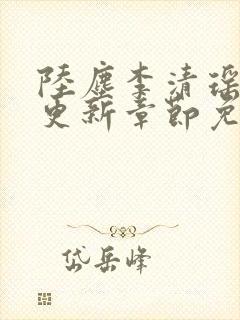 陸塵李清瑶
更新章節免
岱岳峰